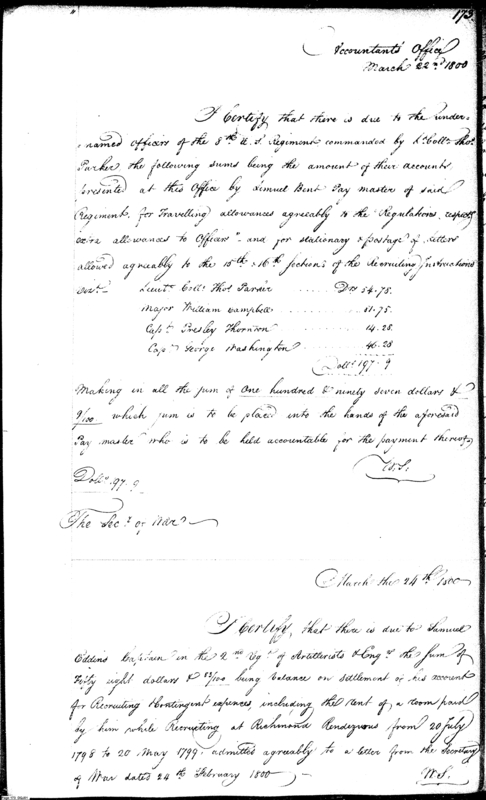 173
Accountants Office
March 22nd 1800
I Certify that there is due to the under-
named Officers of the 8th U.S. Regiment commanded by Lt Coll Thos
Parker the following sums being the amount of their accounts
presented at this Office by Lemuel Bent Pay master of said
Regiment for Travelling allowances agreably to the "Regulations respectg
extra allowances to Officers" and for stationary & postage of letters
allowed agreably to the 15th & 16th Sections of the Recruiting Instructions
Lieut Coll Thos Parker Drs 54.75.
Major William Campbell 81.75.
Capt Presley Thornton 14.28.
Capt George Washington 46.28
Dolls 197.9
Making in all the sum of One hundred & ninety seven dollars &
9/100 which sum is to be placed into the hands of the aforesaid
Pay master who is to be held accountable for the payment thereof
W.S.
Dolls 197.9
The Secy of War
March the 24th 1800
I Certify, that there is due to Samuel
Eddins Captain in the 2nd Regt of Artillerists & Engrs the sum of
Fifty eight dollars & /100 being balance on settlement of his account
for Recruiting & Contingent expences, including the rent of a room paid
by him while Recruiting at Richmond Rendezvous from 20 July
1798 to 20 May 1799, admitted agreably to a letter from the Secretary
of War dated 24th February 1800
W.S.